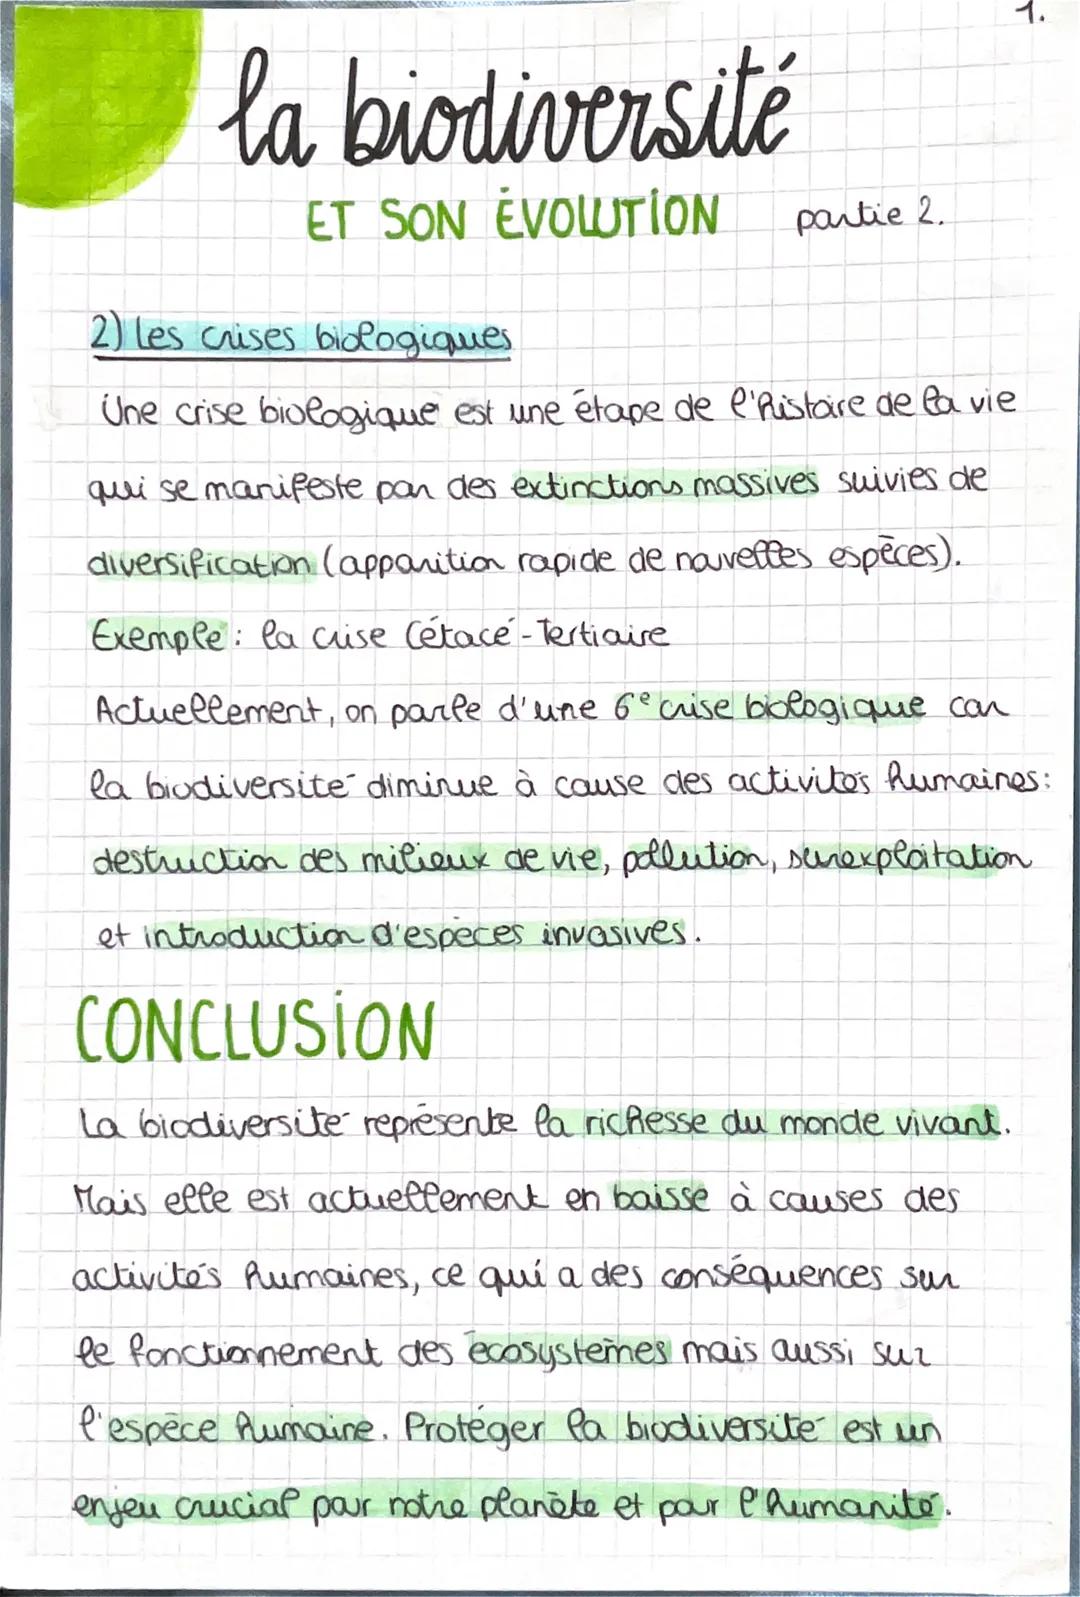 1.
la biodiversité
ET SON ÉVOLUTION partie 2.
2) Les crises biologiques
Une crise biologique est une étape de l'histoire de la vie
qui se manifeste par des extinctions massives suivies de
diversification (apparition rapide de nouvelles espèces).
Exemple : la crise Cétacé-Tertiaire
Actuellement, on parle d'une 6e crise biologique car
la biodiversité diminue à cause des activités humaines :
destruction des milieux de vie, pollution, surexploitation
et introduction d'espèces invasives.
CONCLUSION
La biodiversité représente la richesse du monde vivant.
Mais elle est actuellement en baisse à causes des
activités humaines, ce qui a des conséquences sur
le fonctionnement des écosystèmes mais aussi sur
l'espèce humaine. Protéger la biodiversité est un
enjeu crucial pour notre planète et pour l'humanité.